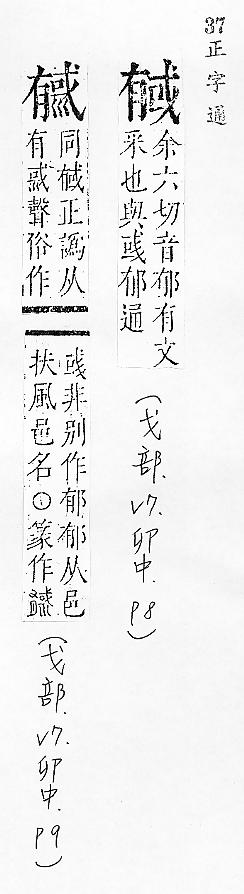 37正字通
戫
余六切音郁有文
采也與彧郁通
(戈部. V7. 卯中. P8)
同戫正譌从
有聲俗作
彧非別作郁郁从邑
扶風邑名○篆作
(戈部. V7. 卯中. P9)